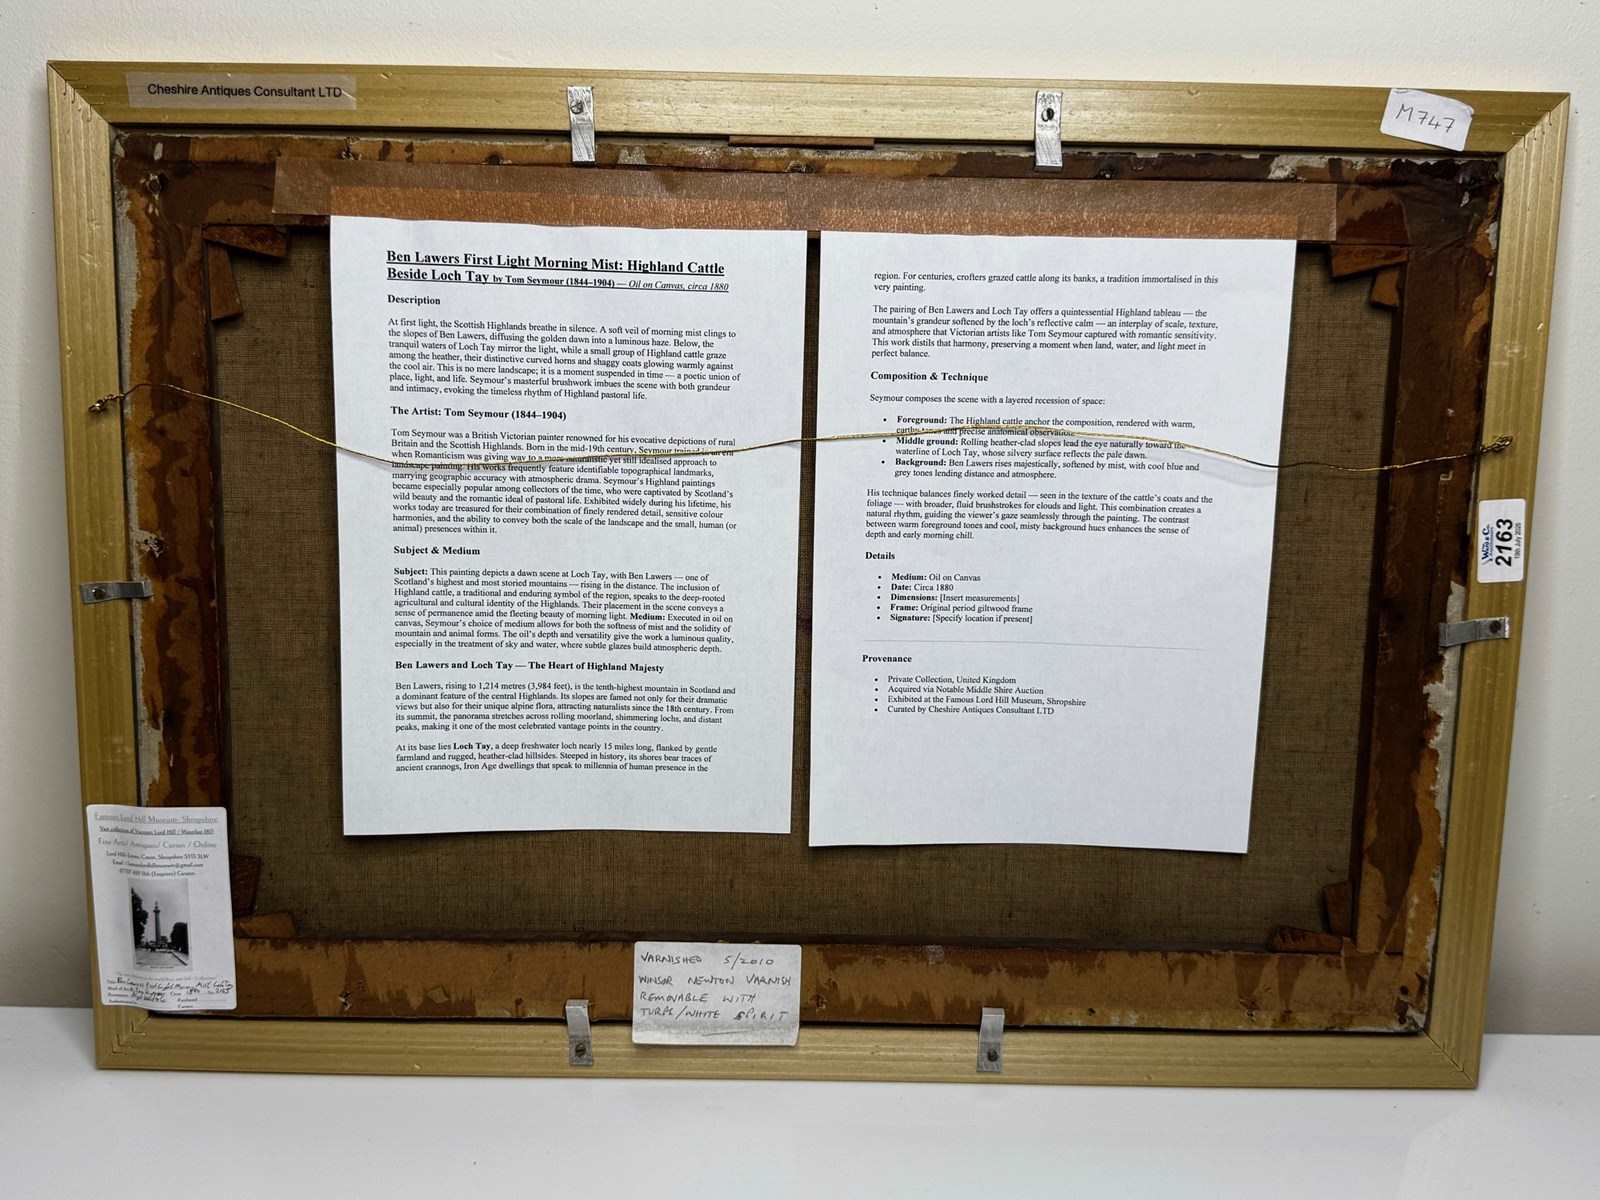 Cheshire Antiques Consultant LTD
M747
Ben Lawers First Light Morning Mist: Highland Cattle
Beside Loch Tay by Tom Seymour (1844–1904) — Oil on Canvas, circa 1880
Description
At first light, the Scottish Highlands breathe in silence. A soft veil of morning mist clings to
the slopes of Ben Lawers, diffusing the golden dawn into a luminous haze. Below, the
tranquil waters of Loch Tay mirror the light, while a small group of Highland cattle graze
among the heather, their distinctive curved horns and shaggy coats glowing warmly against
the cool air. This is no mere landscape; it is a moment suspended in time — a poetic union of
place, light, and life. Seymour's masterful brushwork imbues the scene with both grandeur
and intimacy, evoking the timeless rhythm of Highland pastoral life.
The Artist: Tom Seymour (1844–1904)
Tom Seymour was a British Victorian painter renowned for his evocative depictions of rural
Britain and the Scottish Highlands. Born in the mid-19th century, Seymour trained in an era
when Romanticism was giving way to a more naturalistic yet still idealised approach to
landscape painting. His works frequently feature identifiable topographical landmarks,
marrying geographic accuracy with atmospheric drama. Seymour's Highland paintings
became especially popular among collectors of the time, who were captivated by Scotland's
wild beauty and the romantic ideal of pastoral life. Exhibited widely during his lifetime, his
works today are treasured for their combination of finely rendered detail, sensitive colour
harmonies, and the ability to convey both the scale of the landscape and the small, human (or
animal) presences within it.
Subject & Medium
Subject: This painting depicts a dawn scene at Loch Tay, with Ben Lawers — one of
Scotland's highest and most storied mountains — rising in the distance. The inclusion of
Highland cattle, a traditional and enduring symbol of the region, speaks to the deep-rooted
agricultural and cultural identity of the Highlands. Their placement in the scene conveys a
sense of permanence amid the fleeting beauty of morning light. Medium: Executed in oil on
canvas, Seymour's choice of medium allows for both the softness of mist and the solidity of
mountain and animal forms. The oil's depth and versatility give the work a luminous quality,
especially in the treatment of sky and water, where subtle glazes build atmospheric depth.
Ben Lawers and Loch Tay — The Heart of Highland Majesty
Ben Lawers, rising to 1,214 metres (3,984 feet), is the tenth-highest mountain in Scotland and
a dominant feature of the central Highlands. Its slopes are famed not only for their dramatic
views but also for their unique alpine flora, attracting naturalists since the 18th century. From
its summit, the panorama stretches across rolling moorland, shimmering lochs, and distant
peaks, making it one of the most celebrated vantage points in the country.
At its base lies Loch Tay, a deep freshwater loch nearly 15 miles long, flanked by gentle
farmland and rugged, heather-clad hillsides. Steeped in history, its shores bear traces of
ancient crannogs, Iron Age dwellings that speak to millennia of human presence in the
region. For centuries, crofters grazed cattle along its banks, a tradition immortalised in this
very painting.
The pairing of Ben Lawers and Loch Tay offers a quintessential Highland tableau — the
mountain's grandeur softened by the loch's reflective calm — an interplay of scale, texture,
and atmosphere that Victorian artists like Tom Seymour captured with romantic sensitivity.
This work distils that harmony, preserving a moment when land, water, and light meet in
perfect balance.
Composition & Technique
Seymour composes the scene with a layered recession of space:
• Foreground: The Highland cattle anchor the composition, rendered with warm,
earthy tones and precise anatomical observation.
• Middle ground: Rolling heather-clad slopes lead the eye naturally toward the
waterline of Loch Tay, whose silvery surface reflects the pale dawn.
• Background: Ben Lawers rises majestically, softened by mist, with cool blue and
grey tones lending distance and atmosphere.
His technique balances finely worked detail — seen in the texture of the cattle's coats and the
foliage — with broader, fluid brushstrokes for clouds and light. This combination creates a
natural rhythm, guiding the viewer's gaze seamlessly through the painting. The contrast
between warm foreground tones and cool, misty background hues enhances the sense of
depth and early morning chill.
Details
• Medium: Oil on Canvas
• Date: Circa 1880
• Dimensions: [Insert measurements]
• Frame: Original period giltwood frame
• Signature: [Specify location if present]
Provenance
• Private Collection, United Kingdom
• Acquired via Notable Middle Shire Auction
• Exhibited at the Famous Lord Hill Museum, Shropshire
• Curated by Cheshire Antiques Consultant LTD
2163
Famous Lord Hill Museum, Shropshire
Fine Art/ Antiques/ Curios / Online
VARNISHED 5/2010
WINSOR NEWTON VARNISH
REMOVABLE WITH
TURPS/WHITE SPIRIT